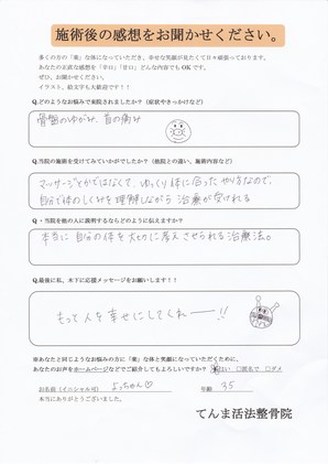 施術後の感想をお聞かせください。
多くの方の「楽」な体になっていただき、幸せな笑顔が見たくて日々頑張っております。
あなたの正直な感想を「辛口」「甘口」どんな内容でもOKです。
ぜひ、お聞かせください。
イラスト、絵文字も大歓迎です！！
Q.どのようなお悩みで来院されましたか？（症状やきっかけなど）
骨盤のゆがみ、首の痛み
Q.当院の施術を受けてみていかがでしたか？（他院との違い、施術内容など）
マッサージとかではなくて、ゆっくり体に合ったやり方なので、
自分で体のしくみを理解しながら治療が受けれる
Q・当院を他の人に説明するならどのように伝えますか？
本当に自分の体を大切に考えさせられる治療法。
Q.最後に私、木下に応援メッセージをお願いします！！
もって人を幸せにしてくれー!!
※あなたと同じようなお悩みの方に「楽」な体と笑顔になっていただくために、
あなたのお声をホームページなどでご紹介してもよろしいですか？ はい □匿名で □ダメ
お名前（イニシャル可） よっちゃん♡ 年齢 35
本当にありがとうございました。
てんま活法整骨院